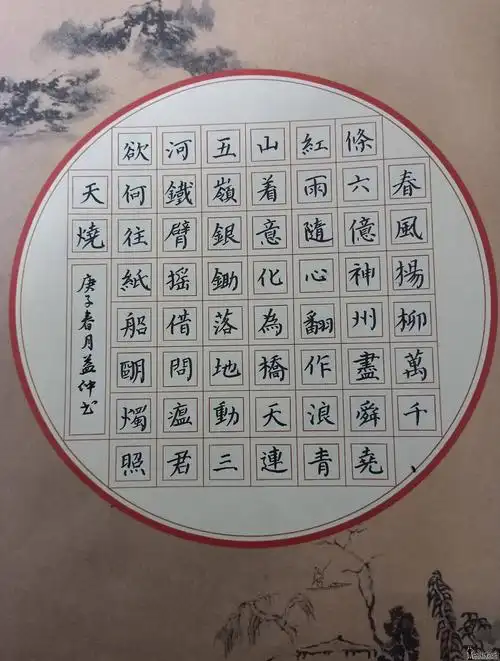 春風楊柳萬千
條六億神州盡舜堯
紅雨隨心翻作浪青
山着意化為橋天連
五嶺銀鋤落地動三
河鐵臂摇借問瘟君
欲何往紙船朙燭照
天燒
庚子春月益仲书